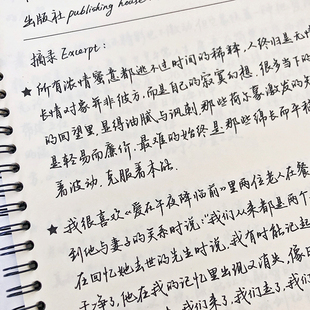 出版社 publishing house
摘录 Excerpt:
★ 所有浓情蜜意都逃不过时间的稀释,人终归是无
长情对象并非彼方,而是自己的寂寞幻想.很多当下的
的回望里显得油腻与讽刺.那些荷尔蒙激发的
是轻易而廉价.最难的始终是:那些绵长而平
着波动,克服着本能.
★ 我很喜欢《爱在午夜降临前》里两位老人在餐
到他与妻子的关系时说:"我们从来都是两个
在回忆她去世的先生时说,我有时能记起
干净了,他在我的记忆里出现又消失,像日
我们来了,我们走了,我们